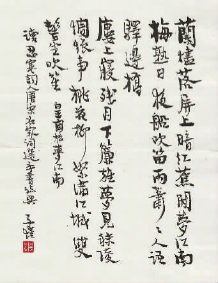 蘭燼落屏上暗紅蕉閒夢江南
梅熟日夜船吹笛雨蕭々人語
驛邊橋
樓上寢殘月下簾旌夢見秣陵
惆悵事桃花柳絮滿江城雙
髻坐吹笙 皇甫松夢江南
讀忍寒詞人唐宋名家詞選